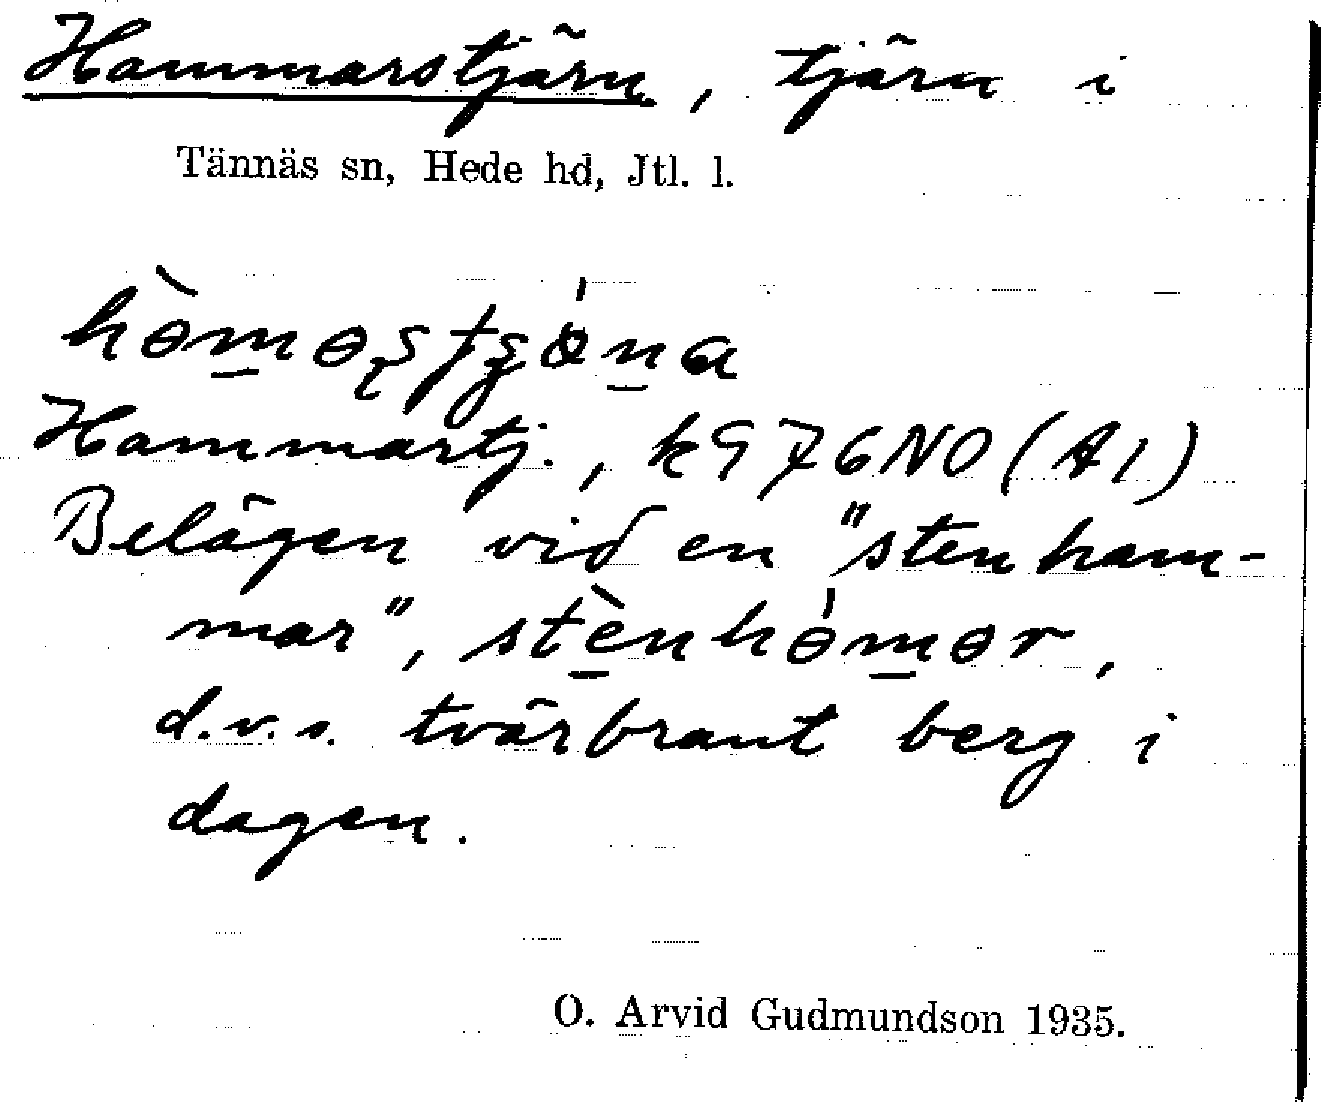 Hammarstjärn, tjärn i
Tännäs sn, Hede hd, Jtl. l.
Hammartj., k976NO (A1)
Belägen vid en "stenham-
mar", stènhòmər,
d.v.s. tvärbrant berg i
dagen.
O. Arvid Gudmundson 1935.